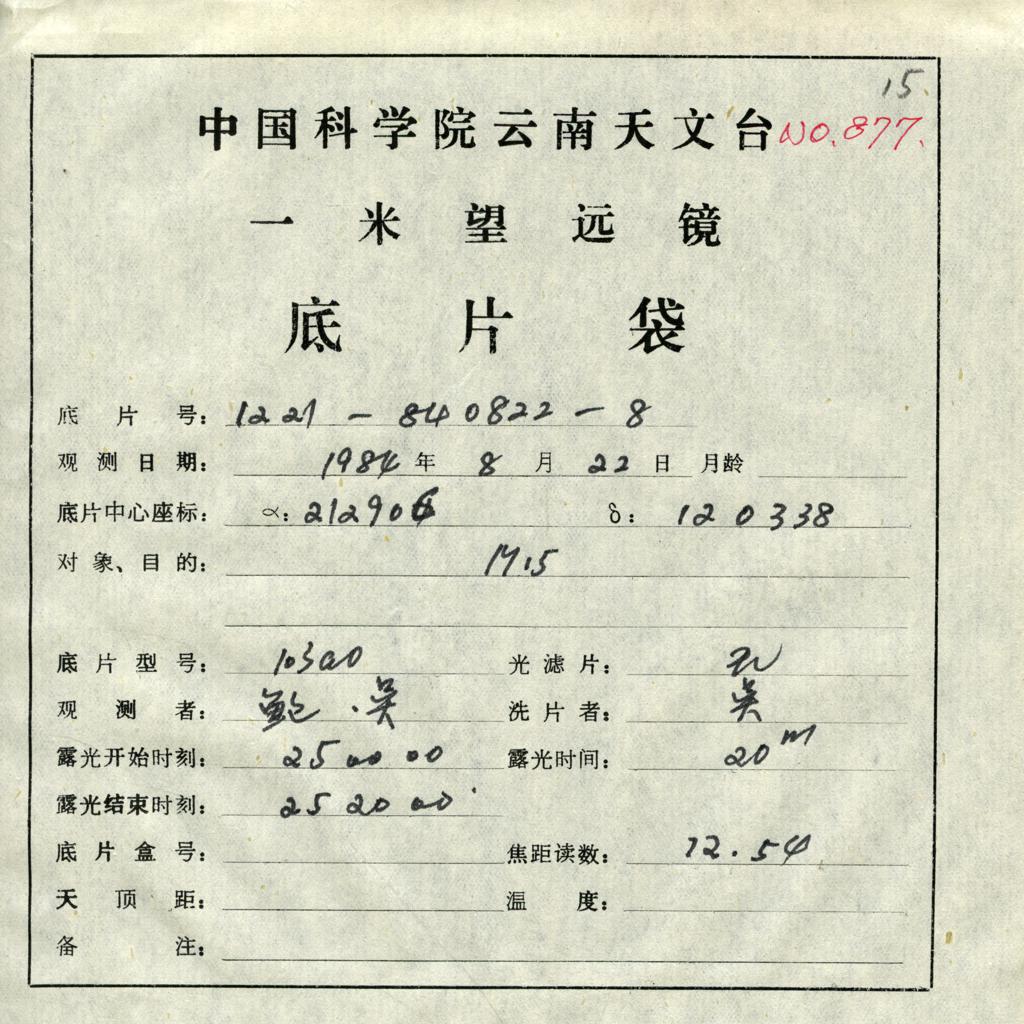 15.
中国科学院云南天文台 NO.877.
一米望远镜
底片袋
底片号: 1221-840822-8
观测日期: 1984年8月22日 月龄
底片中心座标: α: 212906 δ: 120338
对象、目的: M15
底片型号: 103aO 光滤片:
观测者: 鲍·吴 洗片者: 吴
露光开始时刻: 25 00 00 露光时间: 20m
露光结束时刻: 25 20 00
底片盒号: 焦距读数: 12.54
天顶距: 温度:
备注: